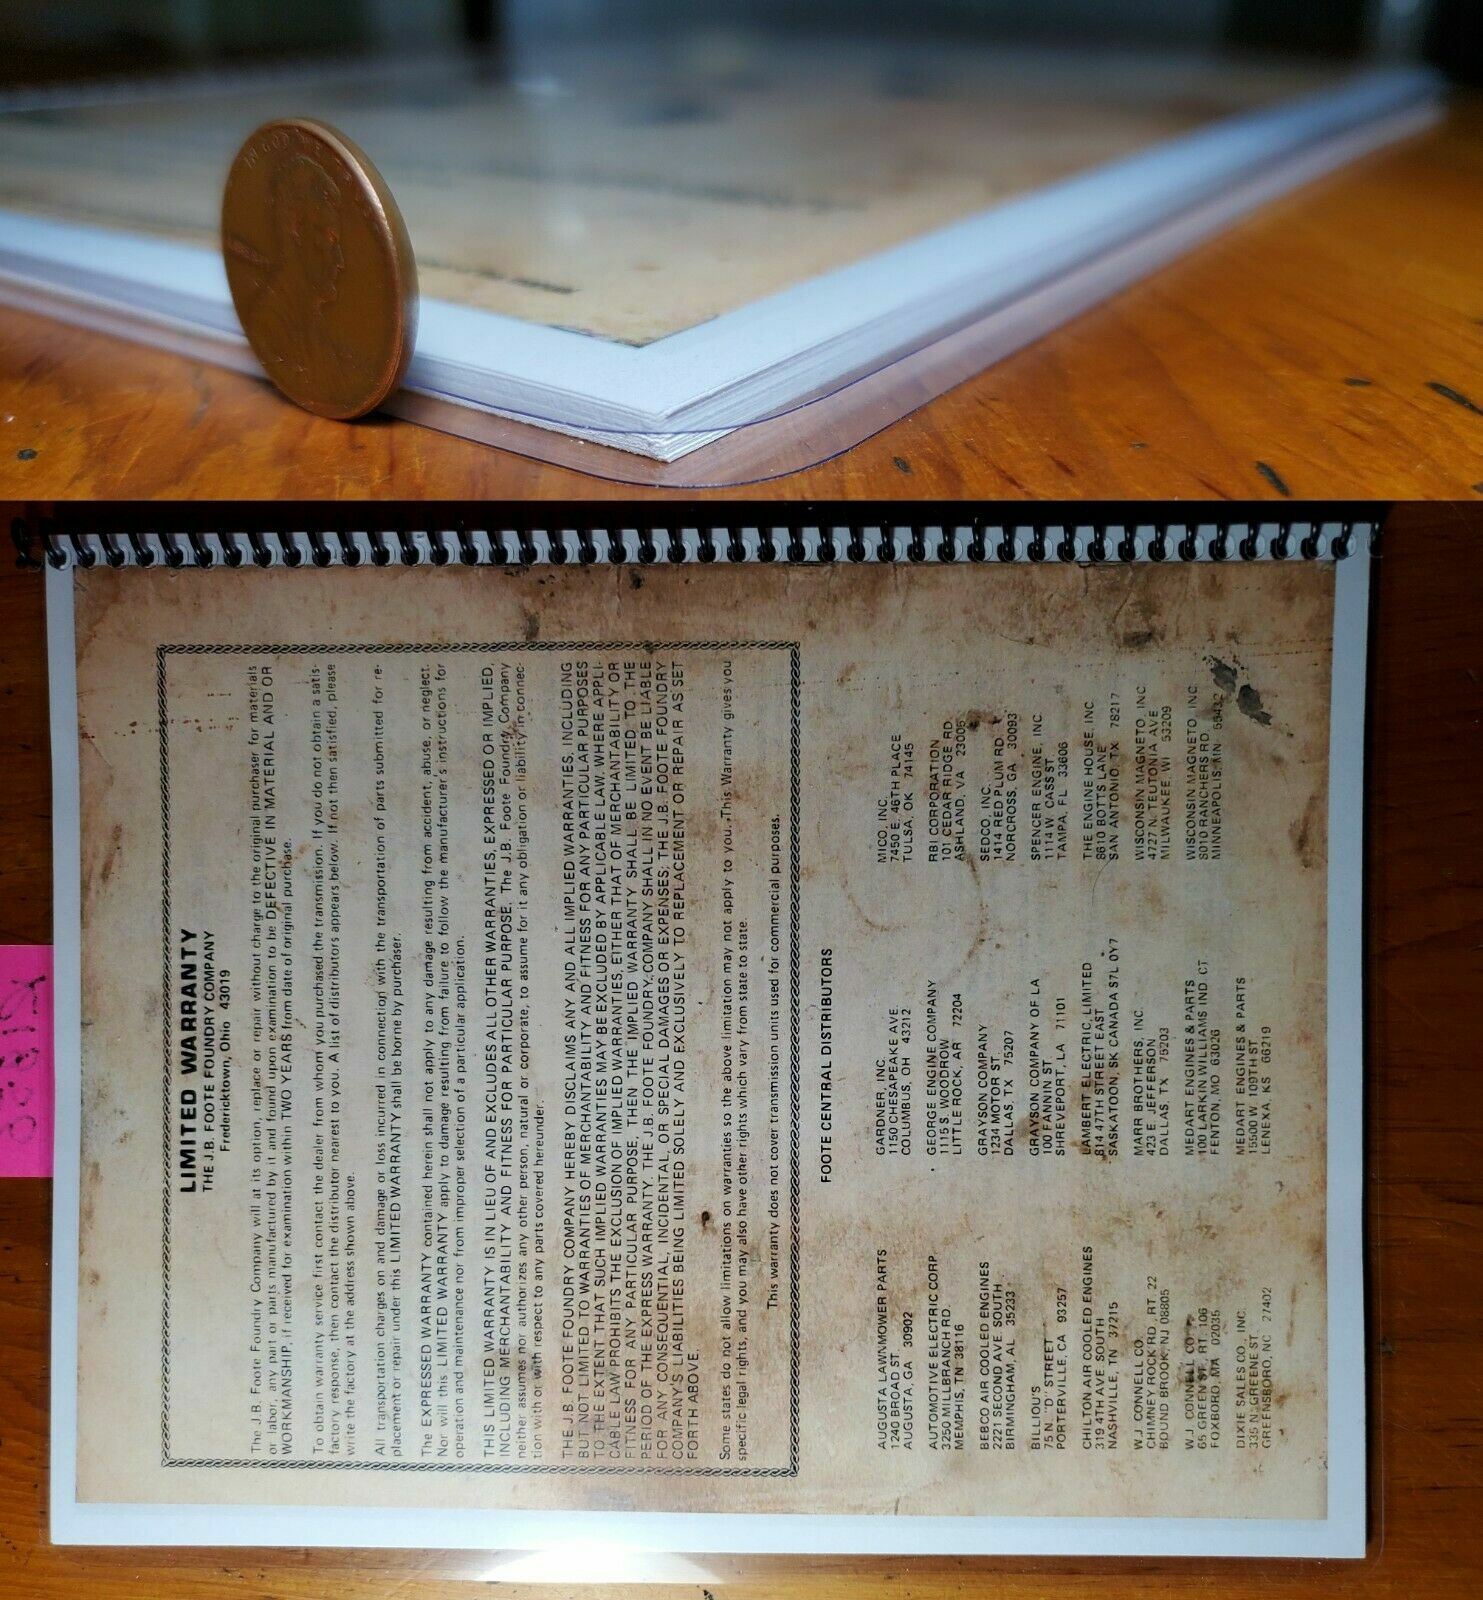 IN GOD WE
LIMITED WARRANTY
THE J.B. FOOTE FOUNDRY COMPANY
Fredericktown, Ohio 43019
The J.B. Foote Foundry Company will at its option, replace or repair without charge to the original purchaser for materials
or labor, any part or parts manufactured by it and found upon examination to be DEFECTIVE IN MATERIAL AND OR
WORKMANSHIP, if received for examination within TWO YEARS from date of original purchase.
To obtain warranty service first contact the dealer from whom you purchased the transmission. If you do not obtain a satis-
factory response, then contact the distributor nearest to you. A list of distributors appears below. If not then satisfied, please
write the factory at the address shown above.
All transportation charges on and damage or loss incurred in connection with the transportation of parts submitted for re-
placement or repair under this LIMITED WARRANTY shall be borne by purchaser.
The EXPRESSED WARRANTY contained herein shall not apply to any damage resulting from accident, abuse, or neglect.
Nor will this LIMITED WARRANTY apply to damage resulting from failure to follow the manufacturer's instructions for
operation and maintenance nor from improper selection of a particular application.
THIS LIMITED WARRANTY IS IN LIEU OF AND EXCLUDES ALL OTHER WARRANTIES, EXPRESSED OR IMPLIED,
INCLUDING MERCHANTABILITY AND FITNESS FOR PARTICULAR PURPOSE. The J.B. Foote Foundry Company
neither assumes nor authorizes any other person, natural or corporate, to assume for it any obligation or liability in connec-
tion with or with respect to any parts covered hereunder.
THE J.B. FOOTE FOUNDRY COMPANY HEREBY DISCLAIMS ANY AND ALL IMPLIED WARRANTIES, INCLUDING
BUT NOT LIMITED TO WARRANTIES OF MERCHANTABILITY AND FITNESS FOR ANY PARTICULAR PURPOSES
TO THE EXTENT THAT SUCH IMPLIED WARRANTIES MAY BE EXCLUDED BY APPLICABLE LAW. WHERE APPLI-
CABLE LAW PROHIBITS THE EXCLUSION OF IMPLIED WARRANTIES, EITHER THAT OF MERCHANTABILITY OR
FITNESS FOR ANY PARTICULAR PURPOSE, THEN THE IMPLIED WARRANTY SHALL BE LIMITED TO THE
PERIOD OF THE EXPRESS WARRANTY. THE J.B. FOOTE FOUNDRY COMPANY SHALL IN NO EVENT BE LIABLE
FOR ANY CONSEQUENTIAL, INCIDENTAL, OR SPECIAL DAMAGES OR EXPENSES; THE J.B. FOOTE FOUNDRY
COMPANY'S LIABILITIES BEING LIMITED SOLELY AND EXCLUSIVELY TO REPLACEMENT OR REPAIR AS SET
FORTH ABOVE.
Some states do not allow limitations on warranties so the above limitation may not apply to you. This Warranty gives you
specific legal rights, and you may also have other rights which vary from state to state.
This warranty does not cover transmission units used for commercial purposes.
FOOTE CENTRAL DISTRIBUTORS
AUGUSTA LAWNMOWER PARTS
1240 BROAD ST.
AUGUSTA, GA 30902
AUTOMOTIVE ELECTRIC CORP.
3250 MILLBRANCH RD.
MEMPHIS, TN 38116
BEBCO AIR COOLED ENGINES
2221 SECOND AVE. SOUTH
BIRMINGHAM, AL 35233
BILLIOU'S
75 N. "D" STREET
PORTERVILLE, CA 93257
CHILTON AIR COOLED ENGINES
319 4TH AVE SOUTH
NASHVILLE, TN 37215
W.J. CONNELL CO.
CHIMNEY ROCK RD., RT. 22
BOUND BROOK, NJ 08805
W.J. CONNELL CO.
65 GREEN ST. RT. 106
FOXBORO, MA 02035
DIXIE SALES CO., INC.
335 N. GREENE ST.
GREENSBORO, NC 27402
GARDNER, INC.
1150 CHESAPEAKE AVE.
COLUMBUS, OH 43212
GEORGE ENGINE COMPANY
1115 S. WOODROW
LITTLE ROCK, AR 72204
GRAYSON COMPANY
1234 MOTOR ST
DALLAS, TX 75207
GRAYSON COMPANY OF LA
100 FANNIN ST
SHREVEPORT, LA 71101
LAMBERT ELECTRIC, LIMITED
814 47TH STREET EAST
SASKATOON, SK CANADA S7L 0Y7
MARR BROTHERS, INC.
423 E. JEFFERSON
DALLAS, TX 75203
MEDART ENGINES & PARTS
100 LARKIN WILLIAMS IND CT
FENTON, MO 63026
MEDART ENGINES & PARTS
15500 W. 109TH ST
LENEXA, KS 66219
MICO, INC.
7450 E. 46TH PLACE
TULSA, OK 74145
RBI CORPORATION
101 CEDAR RIDGE RD.
ASHLAND, VA 23005
SEDCO, INC.
1414 RED PLUM RD
NORCROSS, GA 30093
SPENCER ENGINE, INC
1114 W. CASS ST
TAMPA, FL 33606
THE ENGINE HOUSE, INC
8610 BOTTS LANE
SAN ANTONIO, TX 78217
WISCONSIN MAGNETO, INC
4727 N. TEUTONIA AVE
MILWAUKEE, WI 53209
WISCONSIN MAGNETO, INC
8010 RANCHERS RD.
MINNEAPOLIS, MN 55432